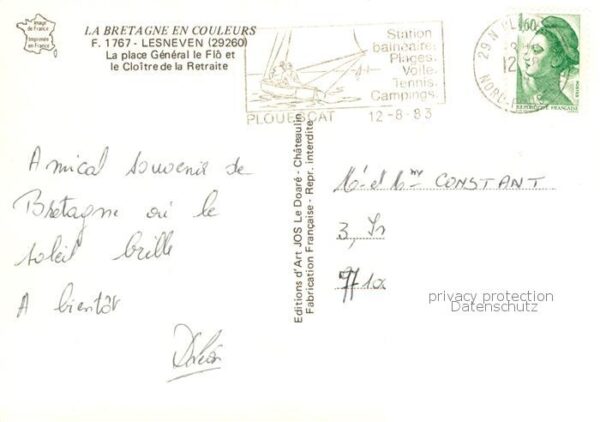 Image
de France
Imprimée
en France
LA BRETAGNE EN COULEURS
F. 1767 - LESNEVEN (29260)
La place Général le Flô et
le Cloître de la Retraite
Station
balnéaire.
Plages.
Voile.
Tennis.
Campings.
PLOUESCAT 12-8-83
29 N
1,60
REPUBLIQUE FRANÇAISE
Editions d'Art JOS Le Doaré - Châteaulin
Fabrication Française - Repr. interdite
Amical souvenir de
Bretagne où le
soleil brille
A bientôt
Mr et Mme CONSTANT
3,
privacy protection
Datenschutz